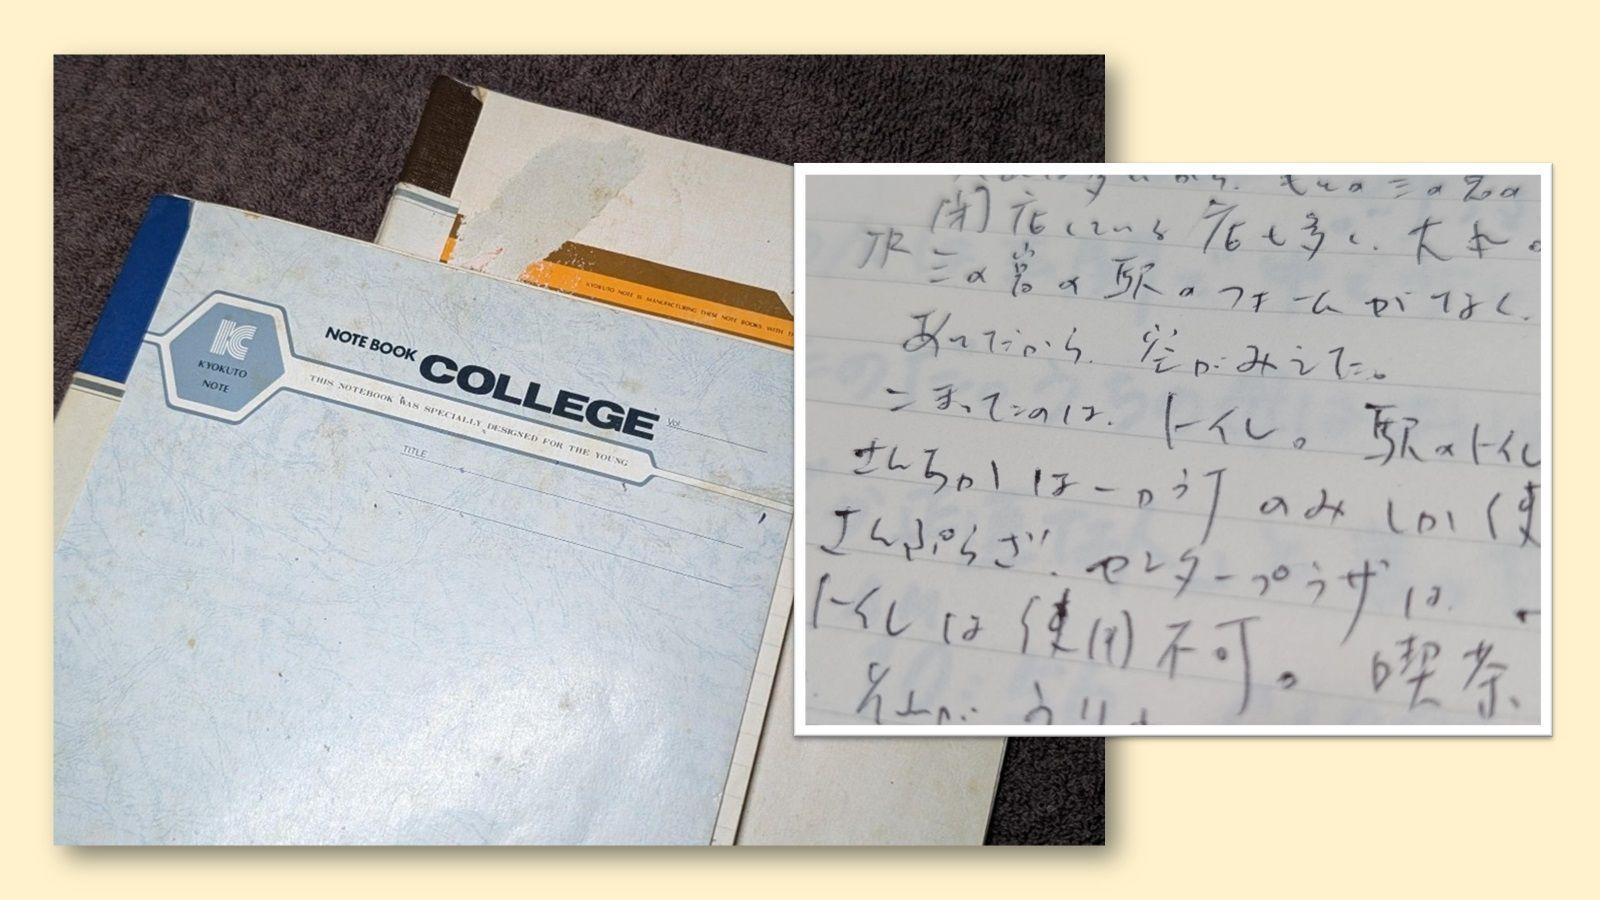 KYOKUTO NOTE IS MANUFACTURING THESE NOTE BOOKS WITH
KYOKUTO
NOTE
NOTE BOOK COLLEGE
Vol.
THIS NOTEBOOK WAS SPECIALLY DESIGNED FOR THE YOUNG
TITLE
閉店している店も多く、大丸。
JR三の宮の駅のフォームがなく、
あってから、空がみえた。
こまったのは、トイレ。駅のトイレ
さんちかしは一かう所のみしか使
さんぷらざ、センタープラザは、
トイレは使用不可。喫茶、